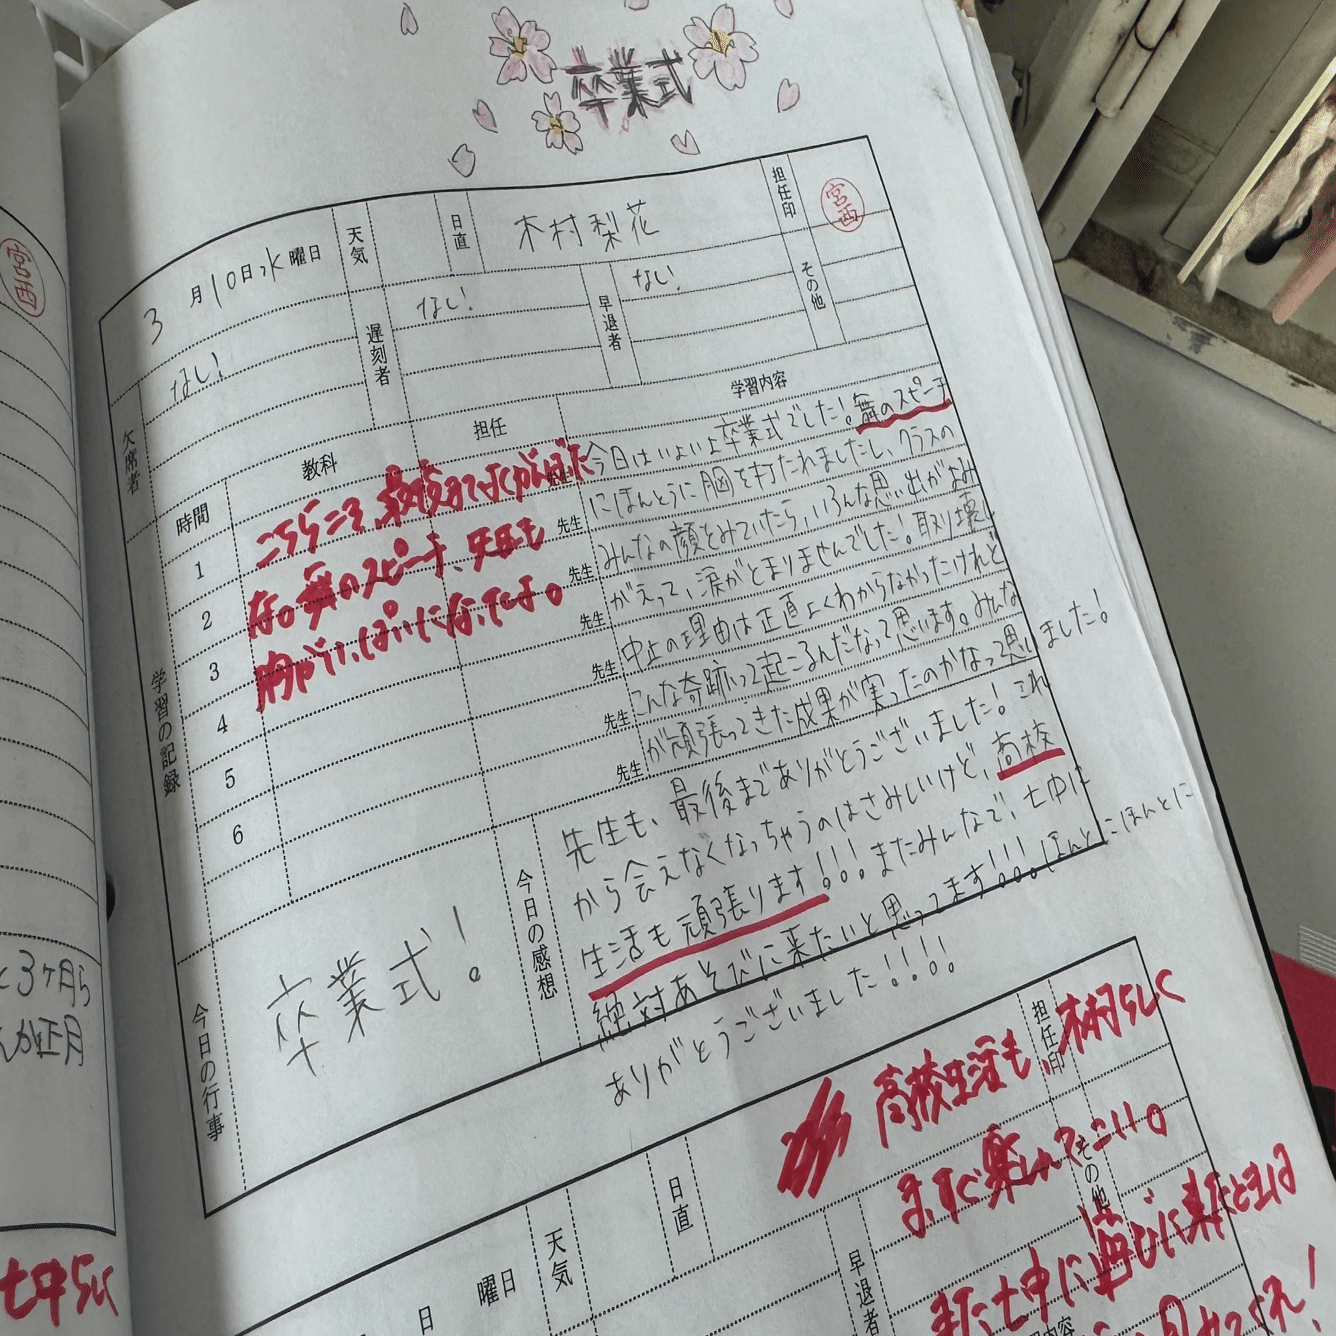 卒業式
宮西
3月10日水曜日
天気
日直
木村梨花
担任印
宮西
欠席者
なし!
遅刻者
なし!
早退者
なし!
その他
学習の記録
時間
教科
担任
学習内容
1
先生
2
先生
3
先生
4
先生
5
先生
6
先生
こちらこそ、
舞のスピーチ、先生も
胸がいっぱいになったよ。
今日はいよいよ卒業式でした!舞のスピーチ
にほんとうに胸を打たれましたし、クラスの
みんなの顔をみていたら、いろんな思い出がよみ
がえって、涙がとまりませんでした!取り壊し
中止の理由は正直よくわからなかったけれど
こんな奇跡って起こるんだなって思います。みんな
が頑張ってきた成果が実ったのかなって思いました!
今日の行事
卒業式!
今日の感想
先生も、最後までありがとうございました!これ
から会えなくなっちゃうのはさみしいけど、高校
生活も頑張ります!!!またみんなで、七中に
絶対あそびに来たいと思ってます!!!ほんとにほんとに
ありがとうございました!!!!
高校生活も、木村らしく
まっすぐ楽しんでこい。
また七中に遊びに来たときは
と3ヶ月ら
んか正月
七中らしく
日
曜日
天気
日直
早退者
担任印
その他
内容